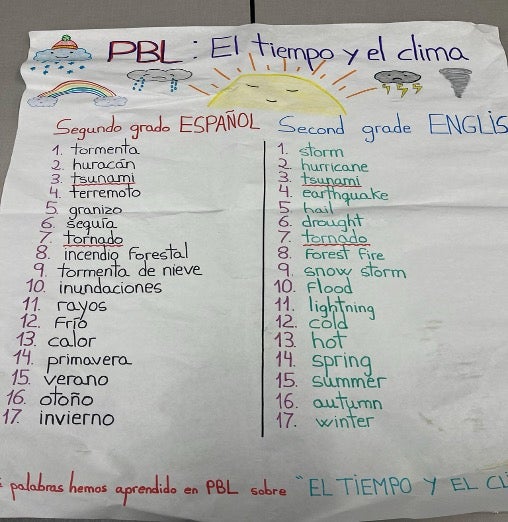 PBL: El tiempo y el clima
Segundo grado ESPAÑOL
1. tormenta
2. huracán
3. tsunami
4. terremoto
5. granizo
6. sequía
7. tornado
8. incendio forestal
9. tormenta de nieve
10. inundaciones
11. rayos
12. Frío
13. calor
14. primavera
15. verano
16. otoño
17. invierno
Second grade ENGLIS
1. storm
2. hurricane
3. tsunami
4. earthquake
5. hail
6. drought
7. tornado
8. Forest Fire
9. snow storm
10. Flood
11. lightning
12. cold
13. hot
14. spring
15. summer
16. autumn
17. winter
palabras hemos aprendido en PBL sobre "EL TIEMPO Y EL CLI